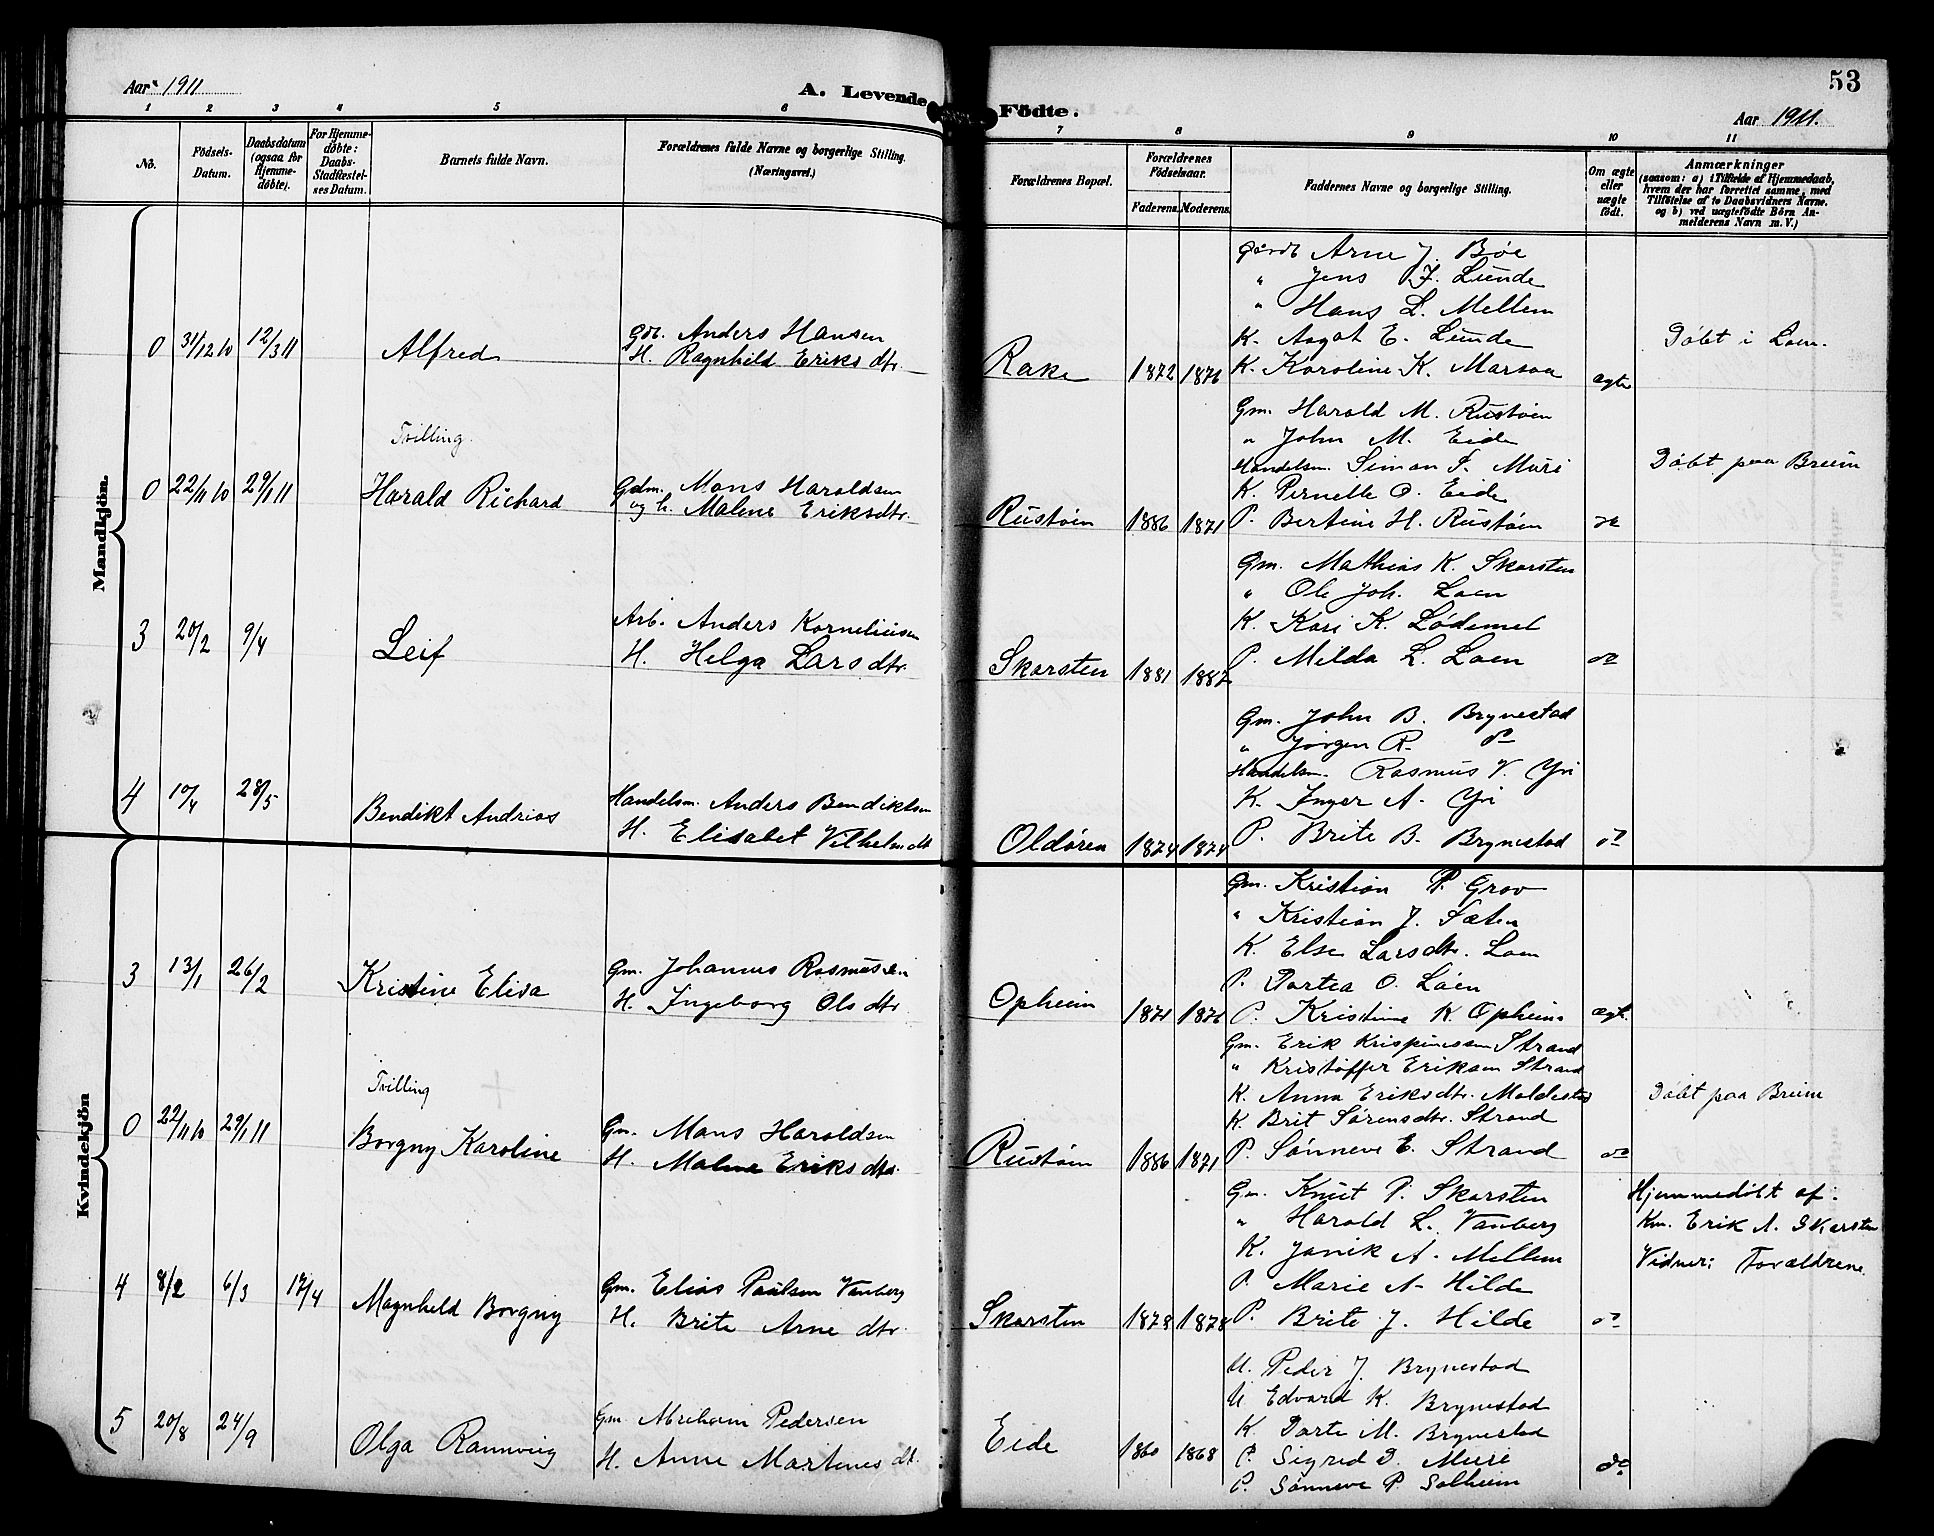 53
Aar 1911
A. Levende Födte.
Aar 1911.
1 2 3 4 5 6 7 8 9 10 11
No.
Födsels-Datum.
Daabsdatum (ogsaa for Hjemme-døbte).
For Hjemme-døbte: Daabs-Stadfæstel-ses Datum.
Barnets fulde Navn.
Forældrenes fulde Navne og borgerlige Stilling.
(Næringsvei.)
Forældrenes Bopæl.
Forældrenes Födselsaar.
Faderens. Moderens.
Faddernes Navne og borgerlige Stilling.
Om ægte eller uægte født.
Anmærkninger
(saasom: a) i Tilfælde af Hjemmedaab,
hvem der har forrettet samme, med
Tilføielse af to Daabsvidners Navne.
og b) ved uægtefödte Börn An-
melderens Navn m. V.)
Mandkjön.
Gårdb Arne J. Bøe
" Jens J. Lunde
" Hans L. Mellem
K. Aagot E. Lunde
K. Karoline K. Marsaa
0 31/12 10 12/3 11 Alfred
Gdb. Anders Hansen
H. Ragnhild Eriks dtr.
Rake 1872 1876 ægte
Døbt i Loen.
Gm. Harald M. Rustøen
" John M. Eide
Handelsm. Simon S. Muri
K. Pernelle O. Eide
P. Bertine H. Rustøen
Tvilling.
0 22/11 10 29/1 11 Harald Richard
Gdm. Mons Haraldsen
og h. Malene Eriksdtr.
Rustøen 1886 1871 do
Døbt paa Breim
Gm. Mathias K. Skarsten
" Ole Joh. Loen
K. Kari K. Lødemel
P. Milda L. Loen
3 20/2 9/4 Leif
Arb. Anders Korneliusen
H. Helga Larsdtr.
Skarsten 1881 1887 do
Gm. John B. Brynestad
" Jørgen R. do
Handelsm. Rasmus V. Yri
K. Inger A. Yri
P. Brite B. Brynestad
4 10/4 28/5 Bendikt Andrias
Handelsm. Anders Bendiktsen
H. Elisabet Vilhelmdt
Oldøren 1874 1874 do
Kvindekjön
Gm. Kristian P. Grov
" Kristian J. Sæten
K. Else Larsdtr. Loen
P. Dortea O. Loen
P. Kristine K. Opheim
3 13/1 26/2 Kristine Elisa
Gm. Johannes Rasmussen
H. Ingeborg Ols dtr.
Opheim 1871 1876 ægt.
Gm. Erik Krispinussen Strand
" Kristoffer Eriksen Strand
K. Anna Eriksdtr. Moldestad
K. Brit Sørensdtr. Strand
P. Sønneve E. Strand
Tvilling
0 22/11 10 29/1 11 Borgny Karoline
Gm. Mons Haraldsen
H. Malene Eriksdtr.
Rustøen 1886 1871 do
Døbt paa Breim
Gm. Knut P. Skarsten
" Harald L. Vanberg
K. Janik A. Mellem
P. Marie A. Hilde
P. Brite J. Hilde
4 8/2 6/3 17/4 Magnhild Borgny
Gm. Elias Paulsen Vanberg
H. Brite Arne dtr.
Skarsten 1878 1878 do
Hjemmedøbt af
Km. Erik A. Skarsten
Vidner: Forældrene.
U. Peder J. Brynestad
U. Edvard K. Brynestad
K. Dorte M. Brynestad
P. Sigred D. Muri
P. Sønneve P. Solheim
5 20/8 24/9 Olga Rannveig
Gm Abraham Pedersen
H. Anne Martines dt.
Eide 1860 1868 do